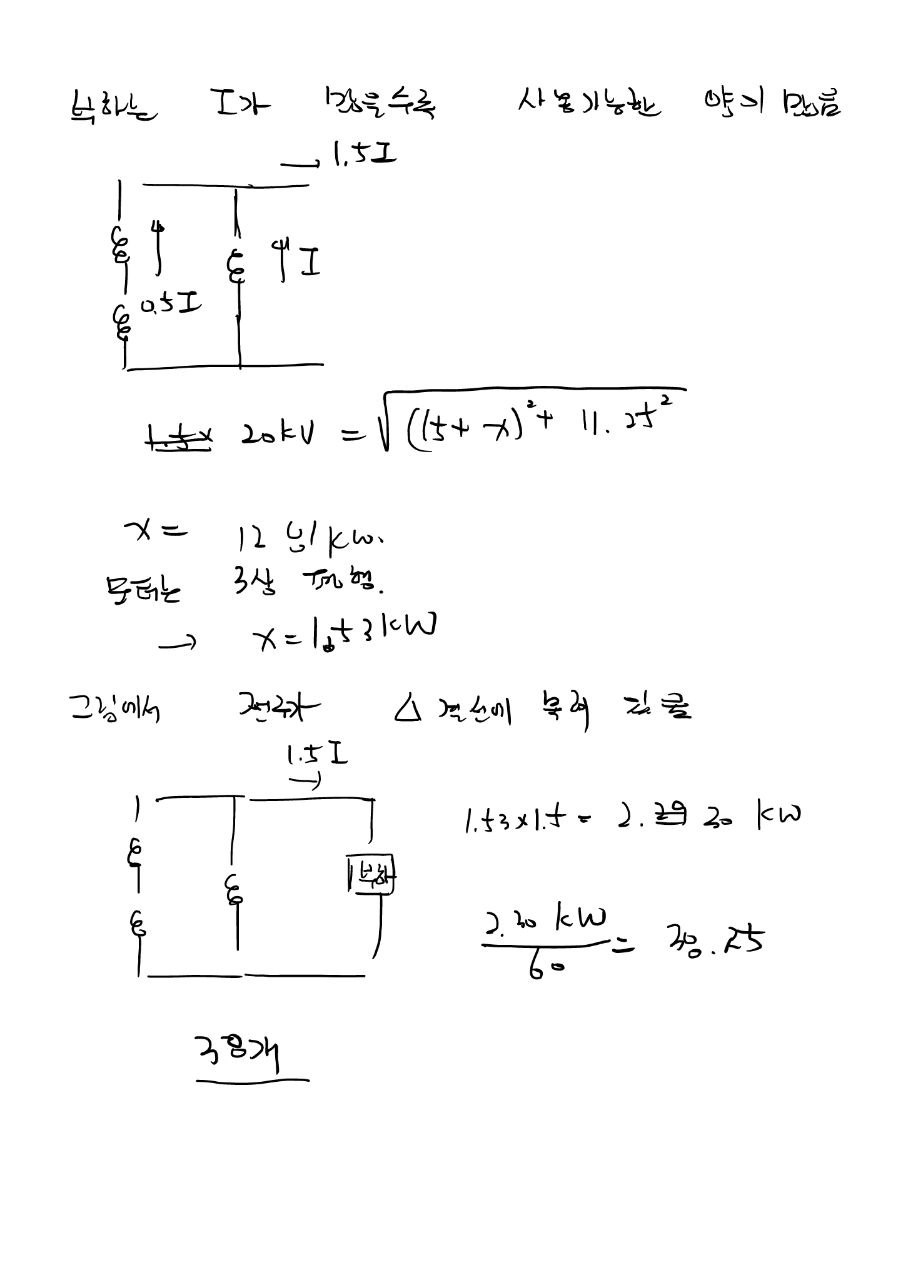 부하는 I가 많을수록 사용가능한 양이 많음
→ 1.5I
0.5I
I
20kV = √((15+x)² + 11.25²
x = 12 kw.
모터는 3상 평형.
→ x = 1.53kW
그림에서 전류가 △결선에 복귀 됨을
1.5I
→
부하
1.53×1.5 = 2.30 kW
2.30 kW
60
= 38.25
38개